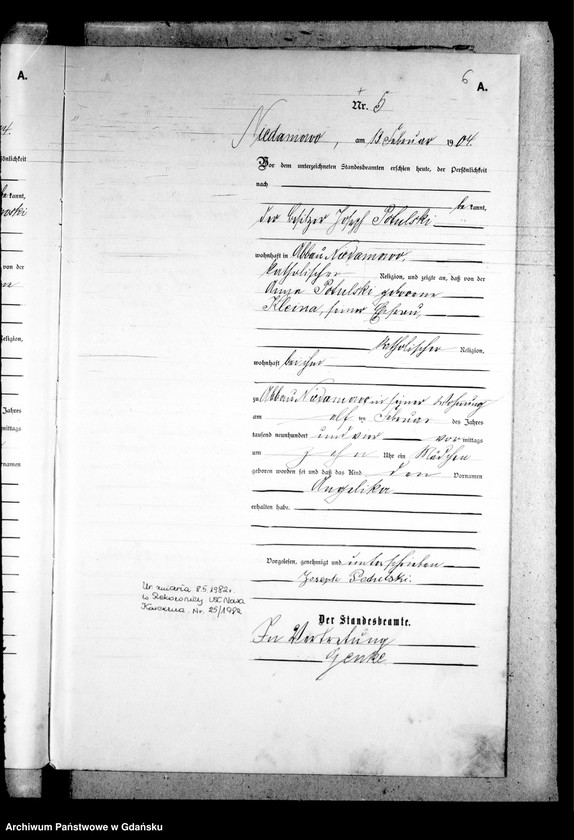 A.
6
A.
Nr. 5
Niedamowo, am 13 Februar 1904.
Vor dem unterzeichneten Standesbeamten erschien heute, der Persönlichkeit
nach
be kannt,
der Besitzer Joseph Potulski
wohnhaft in Abbau Niedamowo,
katholischer Religion, und zeigte an, daß von der
Anna Potulski geborene
Kleina, seiner Ehefrau,
katholischer Religion,
wohnhaft bei ihm
zu Abbau Niedamowo in seiner Wohnung
am elf ten Februar des Jahres
tausend neunhundert und vier vor mittags
um zehn Uhr ein Mädchen
geboren worden sei und daß das Kind den Vornamen
Angelika
erhalten habe.
Vorgelesen, genehmigt und unterschrieben
Joseph Potulski.
Der Standesbeamte.
In Vertretung
Genke
8.5.1982r.
USC Nowa
Karczma. Nr. 25/1982
kannt,
von der
Religion,
Jahres
mittags
Archiwum Państwowe w Gdańsku